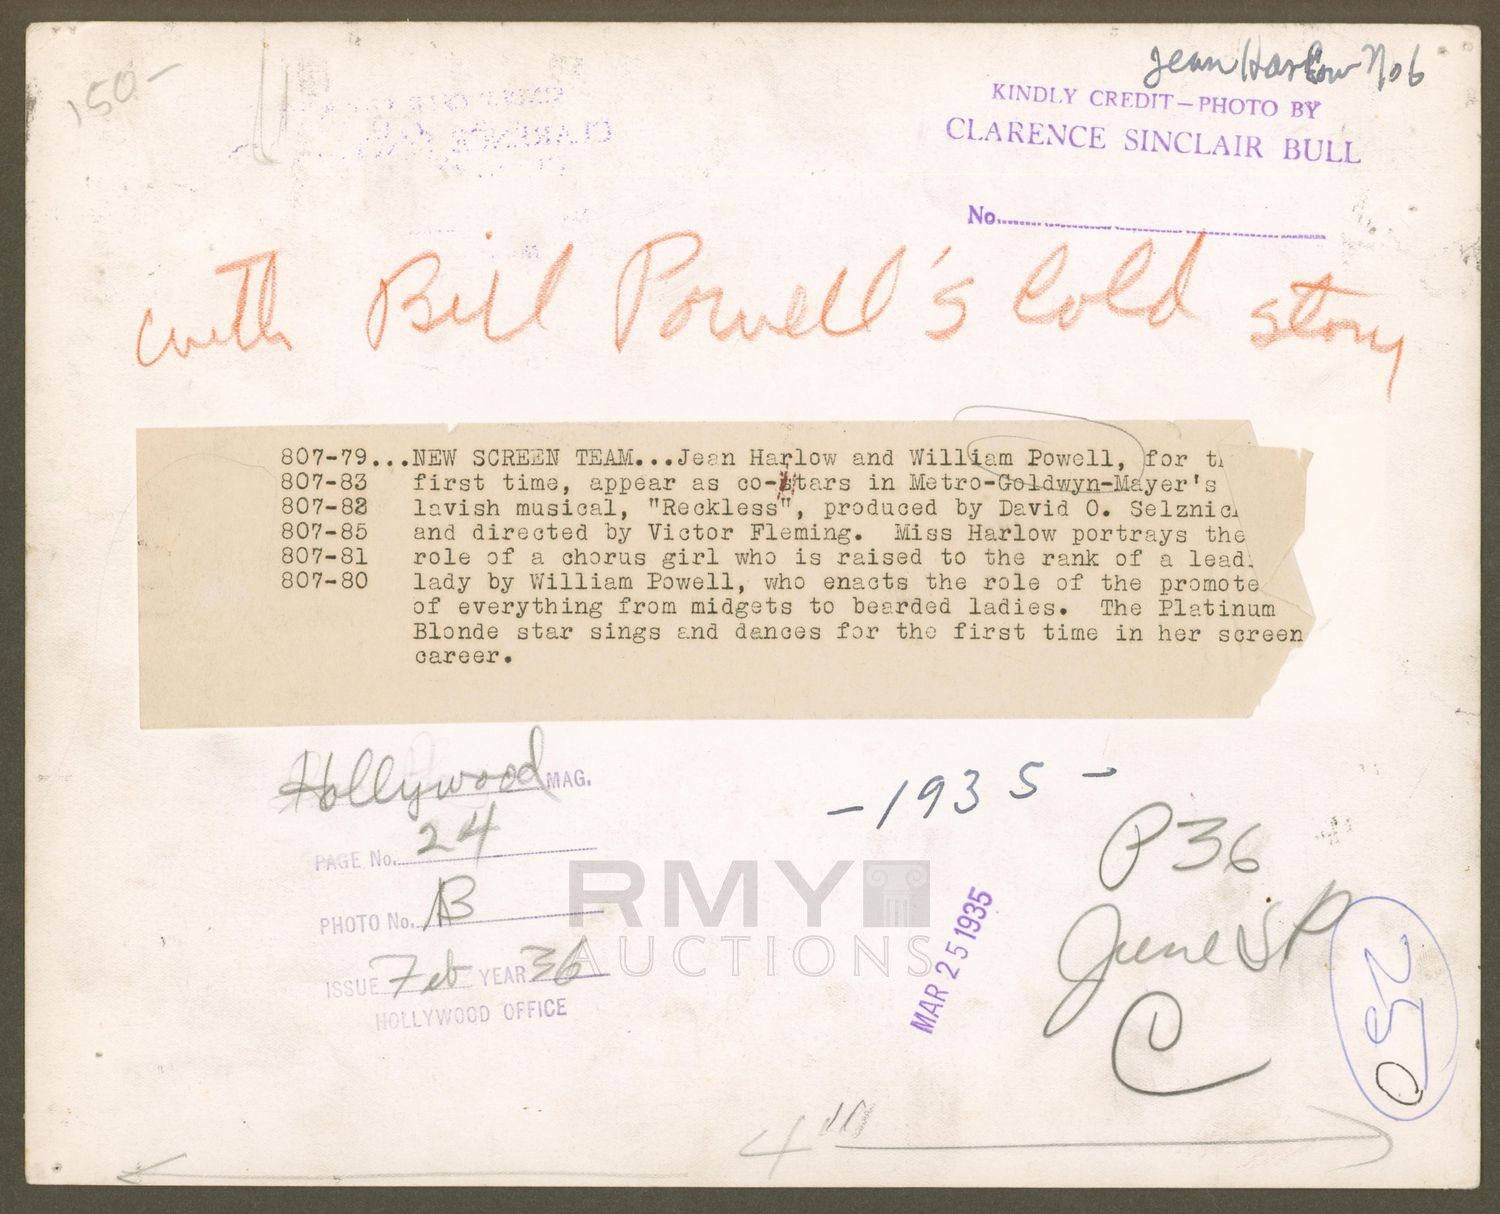 150-
Jean Harlow No 6
KINDLY CREDIT—PHOTO BY
CLARENCE SINCLAIR BULL
No.
with Bill Powell's Cold story
807-79...NEW SCREEN TEAM...Jean Harlow and William Powell, for th
807-83 first time, appear as co-stars in Metro-Goldwyn-Mayer's
807-82 lavish musical, "Reckless", produced by David O. Selznick
807-85 and directed by Victor Fleming. Miss Harlow portrays the
807-81 role of a chorus girl who is raised to the rank of a lead
807-80 lady by William Powell, who enacts the role of the promote
of everything from midgets to bearded ladies. The Platinum
Blonde star sings and dances for the first time in her screen
career.
Hollywood MAG.
PAGE No. 24
PHOTO No. B
ISSUE Feb YEAR 36
HOLLYWOOD OFFICE
-1935-
MAR 25 1935
P 36
June SP
C
250
4"
RMY
AUCTIONS